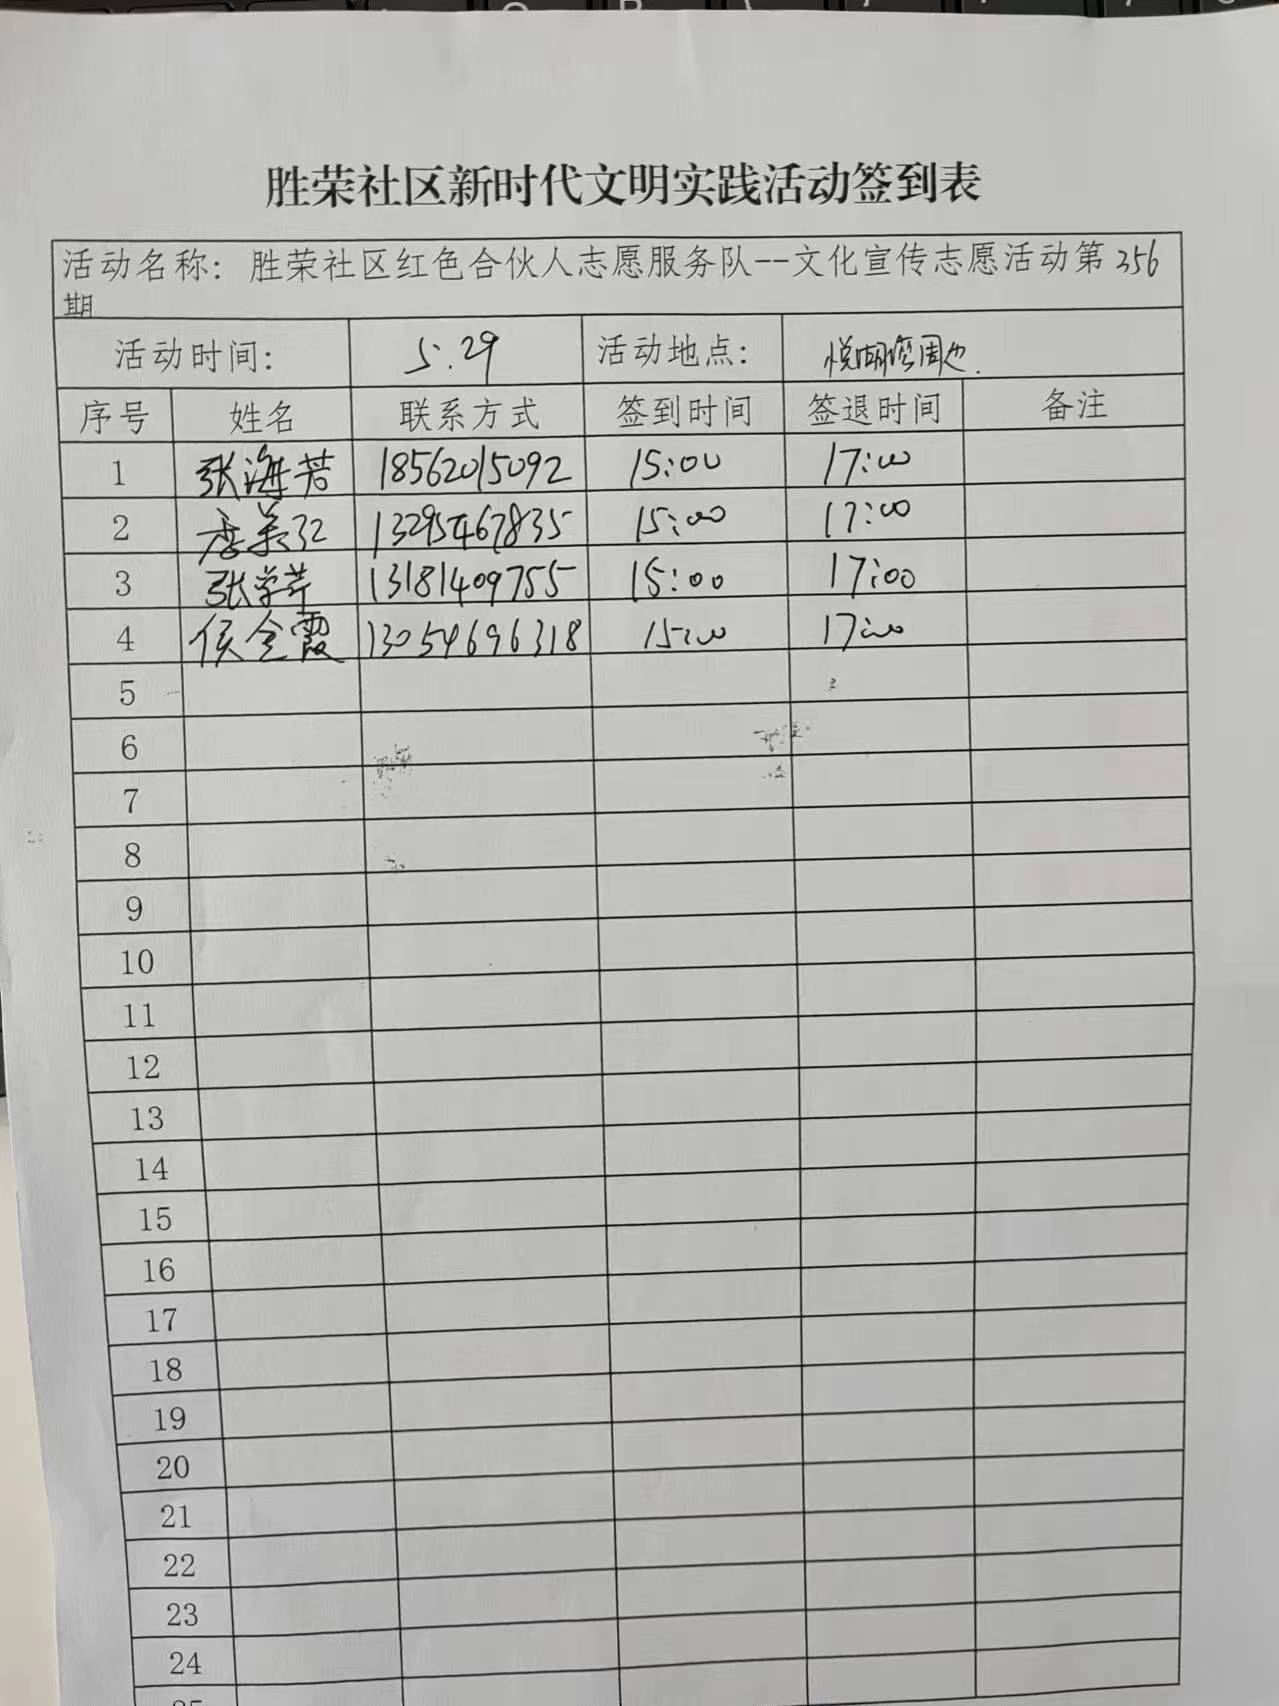 胜荣社区新时代文明实践活动签到表
活动名称：胜荣社区红色合伙人志愿服务队--文化宣传志愿活动第356
期
活动时间： 5.29 活动地点： 悦湖湾周边.
序号 姓名 联系方式 签到时间 签退时间 备注
1 张海芳 18562015092 15:00 17:00
2 李美红 13295467835 15:00 17:00
3 张学芹 13181409755 15:00 17:00
4 侯全霞 13054696318 15:00 17:00
5
6
7
8
9
10
11
12
13
14
15
16
17
18
19
20
21
22
23
24